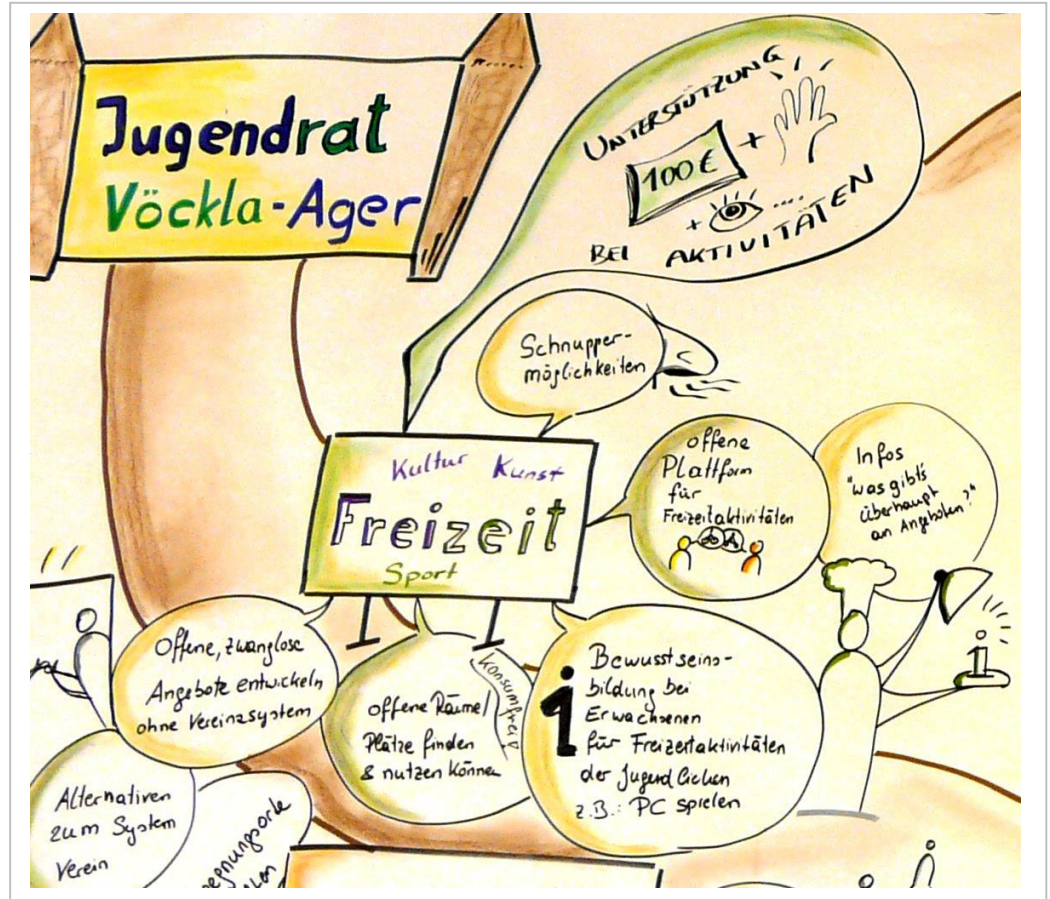 Jugendrat
Vöckla-Ager
UNTERSTÜTZUNG
100€ +
+ ....
BEI AKTIVITÄTEN
Schnupper-
möglichkeiten
Kultur Kunst
Freizeit
Sport
offene
Plattform
für
Freizeitaktivitäten
Infos
"was gibt's
überhaupt
an Angeboten?"
Offene, zwanglose
Angebote entwickeln
ohne Vereinssystem
konsumfrei
offene Räume/
Plätze finden
& nutzen können
i
Bewusstseins-
bildung bei
Erwachsenen
für Freizeitaktivitäten
der Jugendlichen
z.B.: PC spielen
i
Alternativen
zum System
Verein